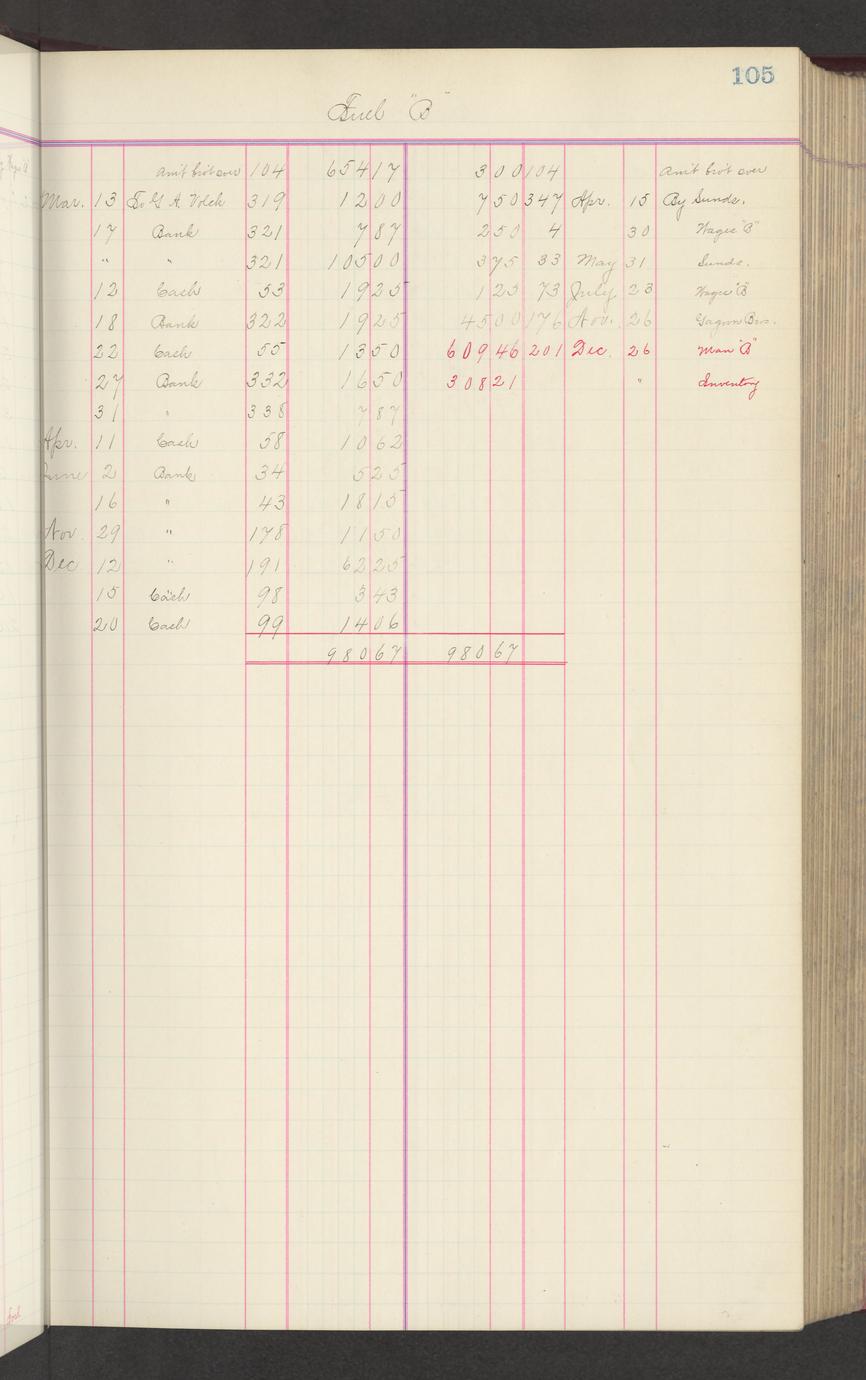 105
Fuel "B"
am't bro't over 104 654 17 3 00 104 am't bro't over
Mar. 13 To G A Volck 319 12 00 7 50 347 Apr. 15 By Sunds.
17 Bank 321 7 87 2 50 4 30 Wages "B"
" " 321 105 00 3 75 33 May 31 Sunds.
12 Cash 53 19 25 1 25 73 July 23 Wages "B"
18 Bank 322 19 25 45 00 176 Nov. 26 Gagnon Bros.
22 Cash 55 13 50 609 46 201 Dec. 26 Man "B"
27 Bank 332 16 50 308 21 " Inventory
31 " 338 7 87
Apr. 11 Cash 58 10 62
June 2 Bank 34 5 25
16 " 43 18 15
Nov. 29 " 178 11 50
Dec 12 " 191 62 25
15 Cash 98 3 43
20 Cash 99 14 06
980 67 980 67